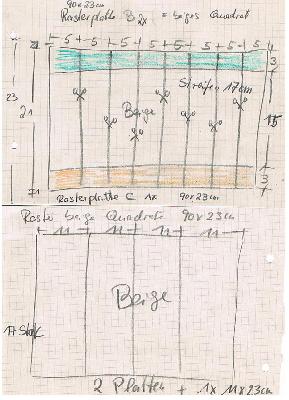 90x23cm
Rasterplatte B 2x = beiges Quadrat
5 5 5 5 5 5 5 5
3
Streifen 17cm
23
21
Beige
15
3
Rasterplatte C 1x 90x23cm
Reste beige Quadrate 90x23cm
11 11 11 11
Beige
17 Stück
2 Platten + 1x 11x23cm